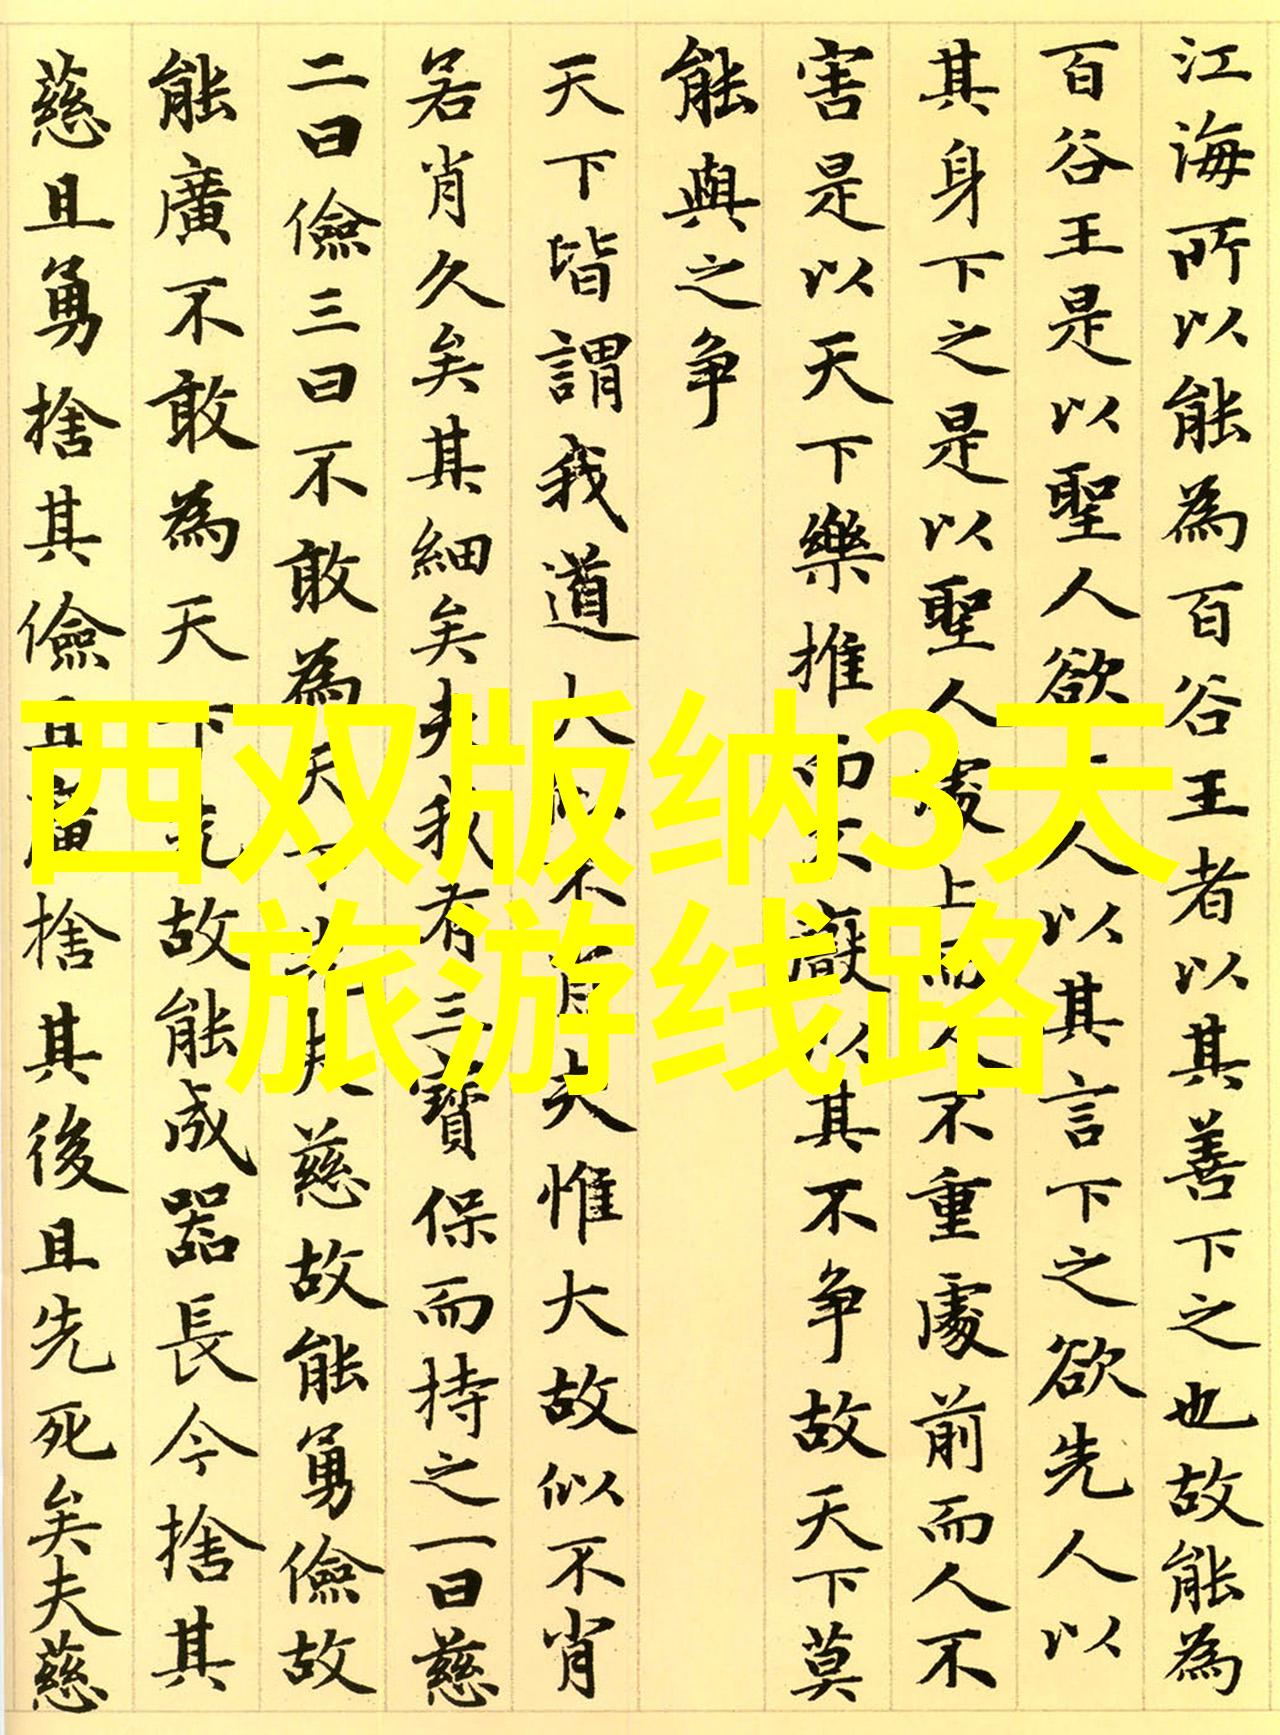 西双版纳3天
旅游线路
江海所以能為百谷王者以其善下之也故能為
百谷王是以聖人欲人以其言下之欲先人以
其身下之是以聖人處上而人不重處前而人不
害是以天下樂推而不厭以其不争故天下莫
能與之争
天下皆謂我道大似不肖夫惟大故似不肖
若肖久矣其細矣夫我有三寶保而持之一曰慈
二曰儉三曰不敢為天下先夫慈故能勇儉故
能廣不敢為天下先故能成器長今捨其
慈且勇捨其儉且廣捨其後且先死矣夫慈